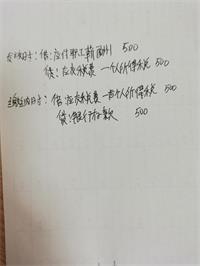 发工资时：借：应付职工薪酬 500
贷：应交税费—个人所得税 500
缴纳时：借：应交税费—个人所得税 500
贷：银行存款 500